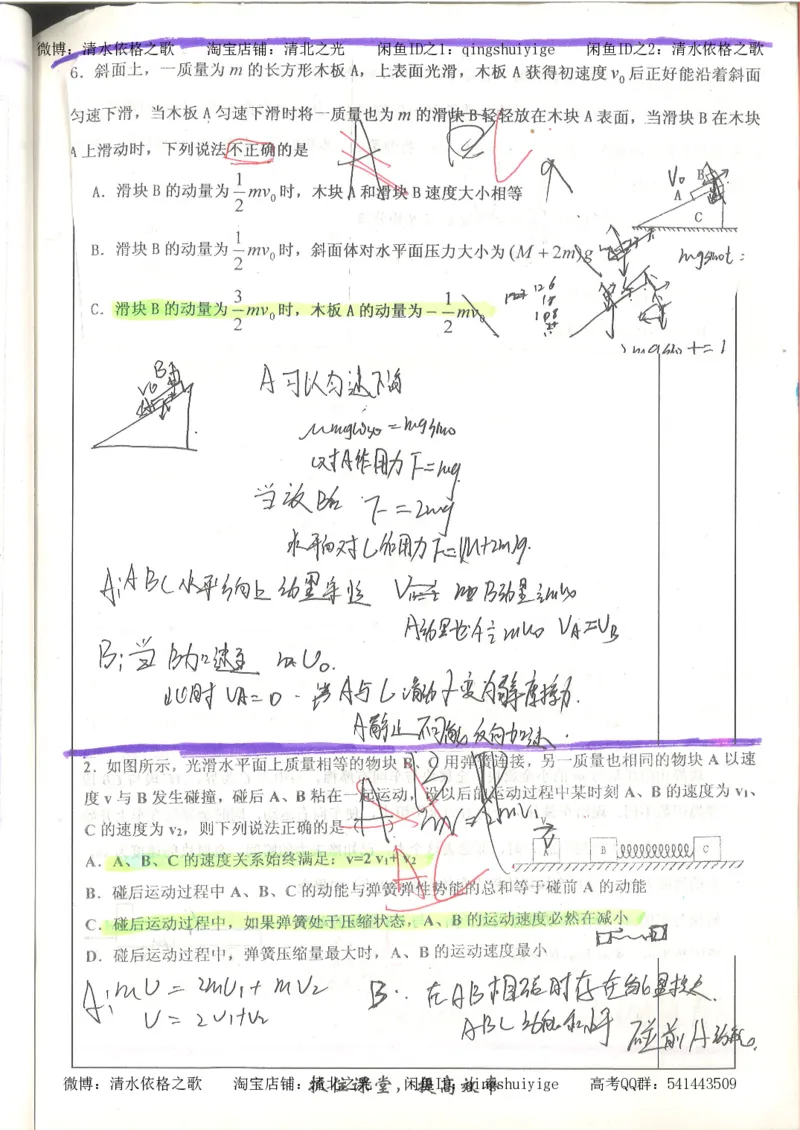 微博: 清水依格之歌 淘宝店铺: 清北之光 闲鱼ID之1: qingshuiyige 闲鱼ID之2: 清水依格之歌
6. 斜面上，一质量为 m 的长方形木板 A，上表面光滑，木板 A 获得初速度 v₀ 后正好能沿着斜面
匀速下滑，当木板 A 匀速下滑时将一质量也为 m 的滑块 B 轻轻放在木块 A 表面，当滑块 B 在木块
A 上滑动时，下列说法不正确的是
A. 滑块 B 的动量为 1/2 mv₀ 时，木块 A 和滑块 B 速度大小相等
B. 滑块 B 的动量为 1/2 mv₀ 时，斜面体对水平面压力大小为 (M + 2m)g
C. 滑块 B 的动量为 3/2 mv₀ 时，木板 A 的动量为 − 1/2 mv₀
V₀ B
A
C
B
V₀
A可以匀速下滑
μmgcosθ=mgsinθ
对A作用力F=mg
当放B后 F=2mg
水平面对C的作用力F=(M+2m)g.
B: 当B加速至 mV₀.
此时 VA=0
2. 如图所示，光滑水平面上质量相等的物块 B、C 用弹簧连接，另一质量也相同的物块 A 以速
度 v 与 B 发生碰撞，碰后 A、B 粘在一起运动，设以后的运动过程中某时刻 A、B 的速度为 v₁、
C 的速度为 v₂，则下列说法正确的是
v
A B C
A. A、B、C 的速度关系始终满足: v=2 v₁+ v₂
B. 碰后运动过程中 A、B、C 的动能与弹簧弹性势能的总和等于碰前 A 的动能
C. 碰后运动过程中，如果弹簧处于压缩状态，A、B 的运动速度必然在减小
AC
D. 碰后运动过程中，弹簧压缩量最大时，A、B 的运动速度最小
A: mv = 2mv₁ + mv₂
v = 2v₁+v₂
B: 在AB相碰时存在能量损失.
微博: 清水依格之歌 淘宝店铺: 清北之光 闲鱼ID之1: qingshuiyige 高考QQ群: 541443509
抓住课堂，提高效率